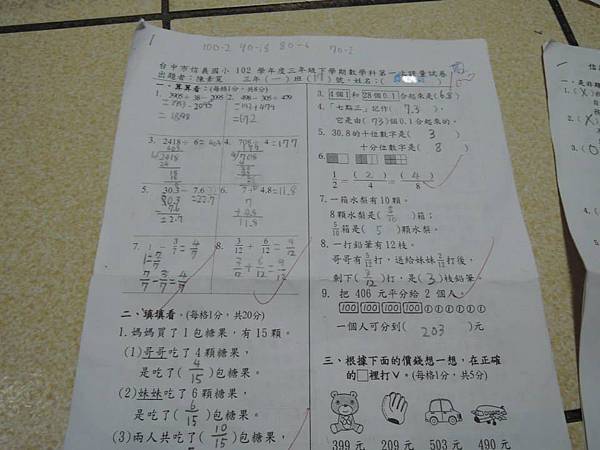 100-2 90-18 80-6 70-2
台中市信義國小 102 學年度三年級下學期數學科第一次評量試卷
出題者：陳素寬 三年(一)班(19)號．姓名：(
一、算算看：(每格1分，共8分)
1. 3905＋38－2095
2. 498－305＋479
=1898
=672
3. 2418÷6=404
4. 708÷4=177
5. 30.3－7.6=22.7
6. 7＋4.8=11.8
7. 1－3/7=4/7
8. 3/12＋6/12=9/12
二、填填看。(每格1分，共20分)
1.媽媽買了1包糖果，有15顆。
(1)哥哥吃了4顆糖果，
是吃了( 4/15 )包糖果。
(2)妹妹吃了6顆糖果，
是吃了( 6/15 )包糖果。
(3)兩人共吃了( 10/15 )包糖果，
3. 4個1和28個0.1合起來是(6.8)
4.「七點三」記作( 7.3 )．
它是由(73)個0.1合起來的。
5. 30.8的十位數字是( 3 )
十分位數字是( 8 )
6.
1/2=(2)/4=(4)/8
7.一箱水梨有10顆。
8顆水梨是( 8/10 )箱；
5/10箱是( 5 )顆水梨。
8.一打鉛筆有12枝。
哥哥有5/12打，送給妹妹2/12打後，
剩下( 3/12 )打，是(3)枝鉛筆。
9. 把 406 元平分給 2 個人。
100 100 100 100 ① ① ① ① ① ①
一個人可分到( 203 )元
三、根據下面的價錢想一想，在正確
的□裡打ˇ。(每格1分，共5分)
399元 209元 503元 490元